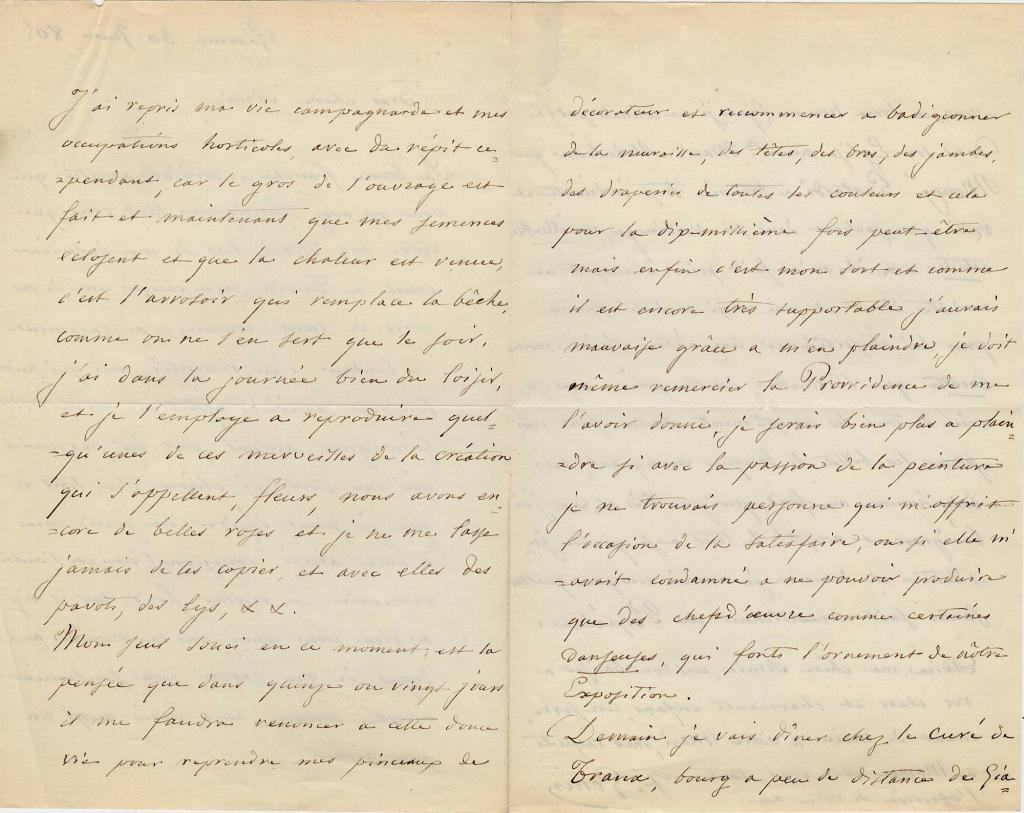 J'ai repris ma vie campagnarde et mes
occupations horticoles, avec du répit ce=
=pendant, car le gros de l'ouvrage est
fait et maintenant que mes semences
éclosent et que la chaleur est venue,
c'est l'arrosoir qui remplace la bêche,
comme on ne s'en sert que le soir,
j'ai dans la journée bien du loisir,
et je l'employe a reproduire quel=
=qu'unes de ces merveilles de la création
qui s'appellent, fleurs, nous avons en=
=core de belles roses et je ne me lasse
jamais de les copier, et avec elles des
pavots, des lys, & &.
Mon seul souci en ce moment, est la
pensée que dans quinze ou vingt jours
il me faudra renoncer a cette douce
vie pour reprendre mes pinceaux de
décorateur et recommencer a badigeonner
de la muraille, des têtes, des bras, des jambes,
des draperies de toutes les couleurs et cela
pour la dix-millième fois peut-être,
mais enfin c'est mon sort et comme
il est encore très supportable j'aurais
mauvaise grâce a m'en plaindre, je doit
même remercier la Providence de me
l'avoir donné, je serais bien plus a plain=
=dre si avec la passion de la peinture
je ne trouvais personne qui m'offrit
l'occasion de la satesfaire, ou si elle m'
=avait condamné a ne pouvoir produire
que des chefs d'œuvre comme certaines
danseuses, qui fonts l'ornement de nôtre
Exposition.
Demain je vais dîner chez le curé de
bourg a peu de distance de Gia=